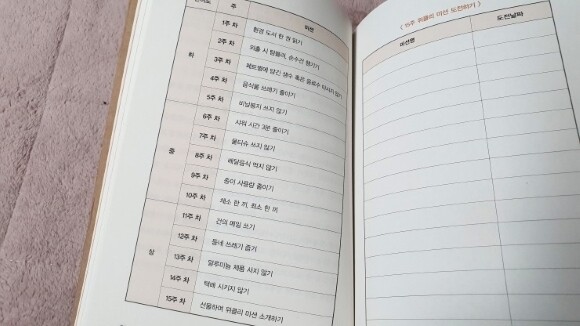 난이도 주 미션
1주 차 환경 도서 한 권 읽기
2주 차 외출 시 텀블러, 손수건 챙기기
하 3주 차 페트병에 담긴 생수 혹은 음료수 마시지 않기
4주 차 음식물 쓰레기 줄이기
5주 차 비닐봉지 쓰지 않기
6주 차 샤워 시간 3분 줄이기
7주 차 물티슈 쓰지 않기
중 8주 차 배달음식 먹지 않기
9주 차 종이 사용량 줄이기
10주 차 채소 한 끼, 최소 한 끼
11주 차 건의 메일 쓰기
12주 차 동네 쓰레기 줍기
상 13주 차 일주마늘 제품 사지 않기
14주 차 택배 시키지 않기
15주 차 선물하며 위클리 미션 소개하기
< 15주 위클리 미션 도전하기 >
미션명 도전날짜